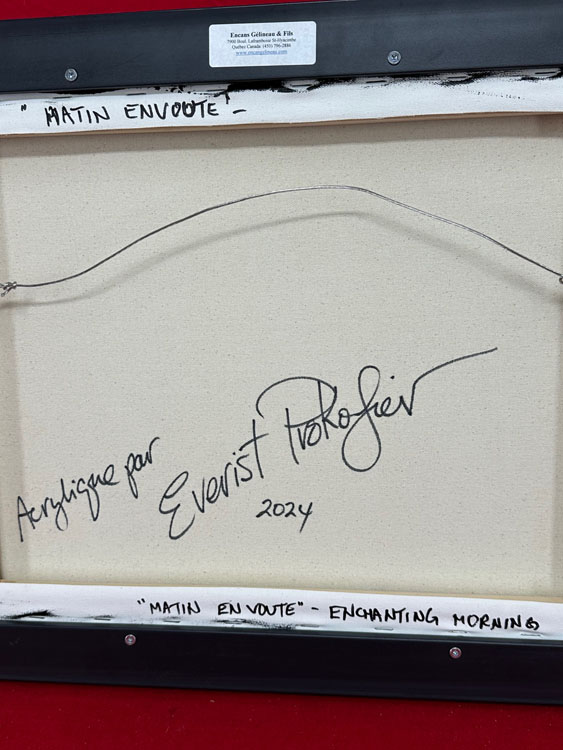 Encans Gélineau & Fils
7900 Boul. Laframboise St-Hyacinthe
Québec Canada (450) 796-2886
www.encangelineau.com
" MATIN ENVOUTE" -
Acrylique par
Everist Prokofiev
2024
"MATIN ENVOUTE" - ENCHANTING MORNING